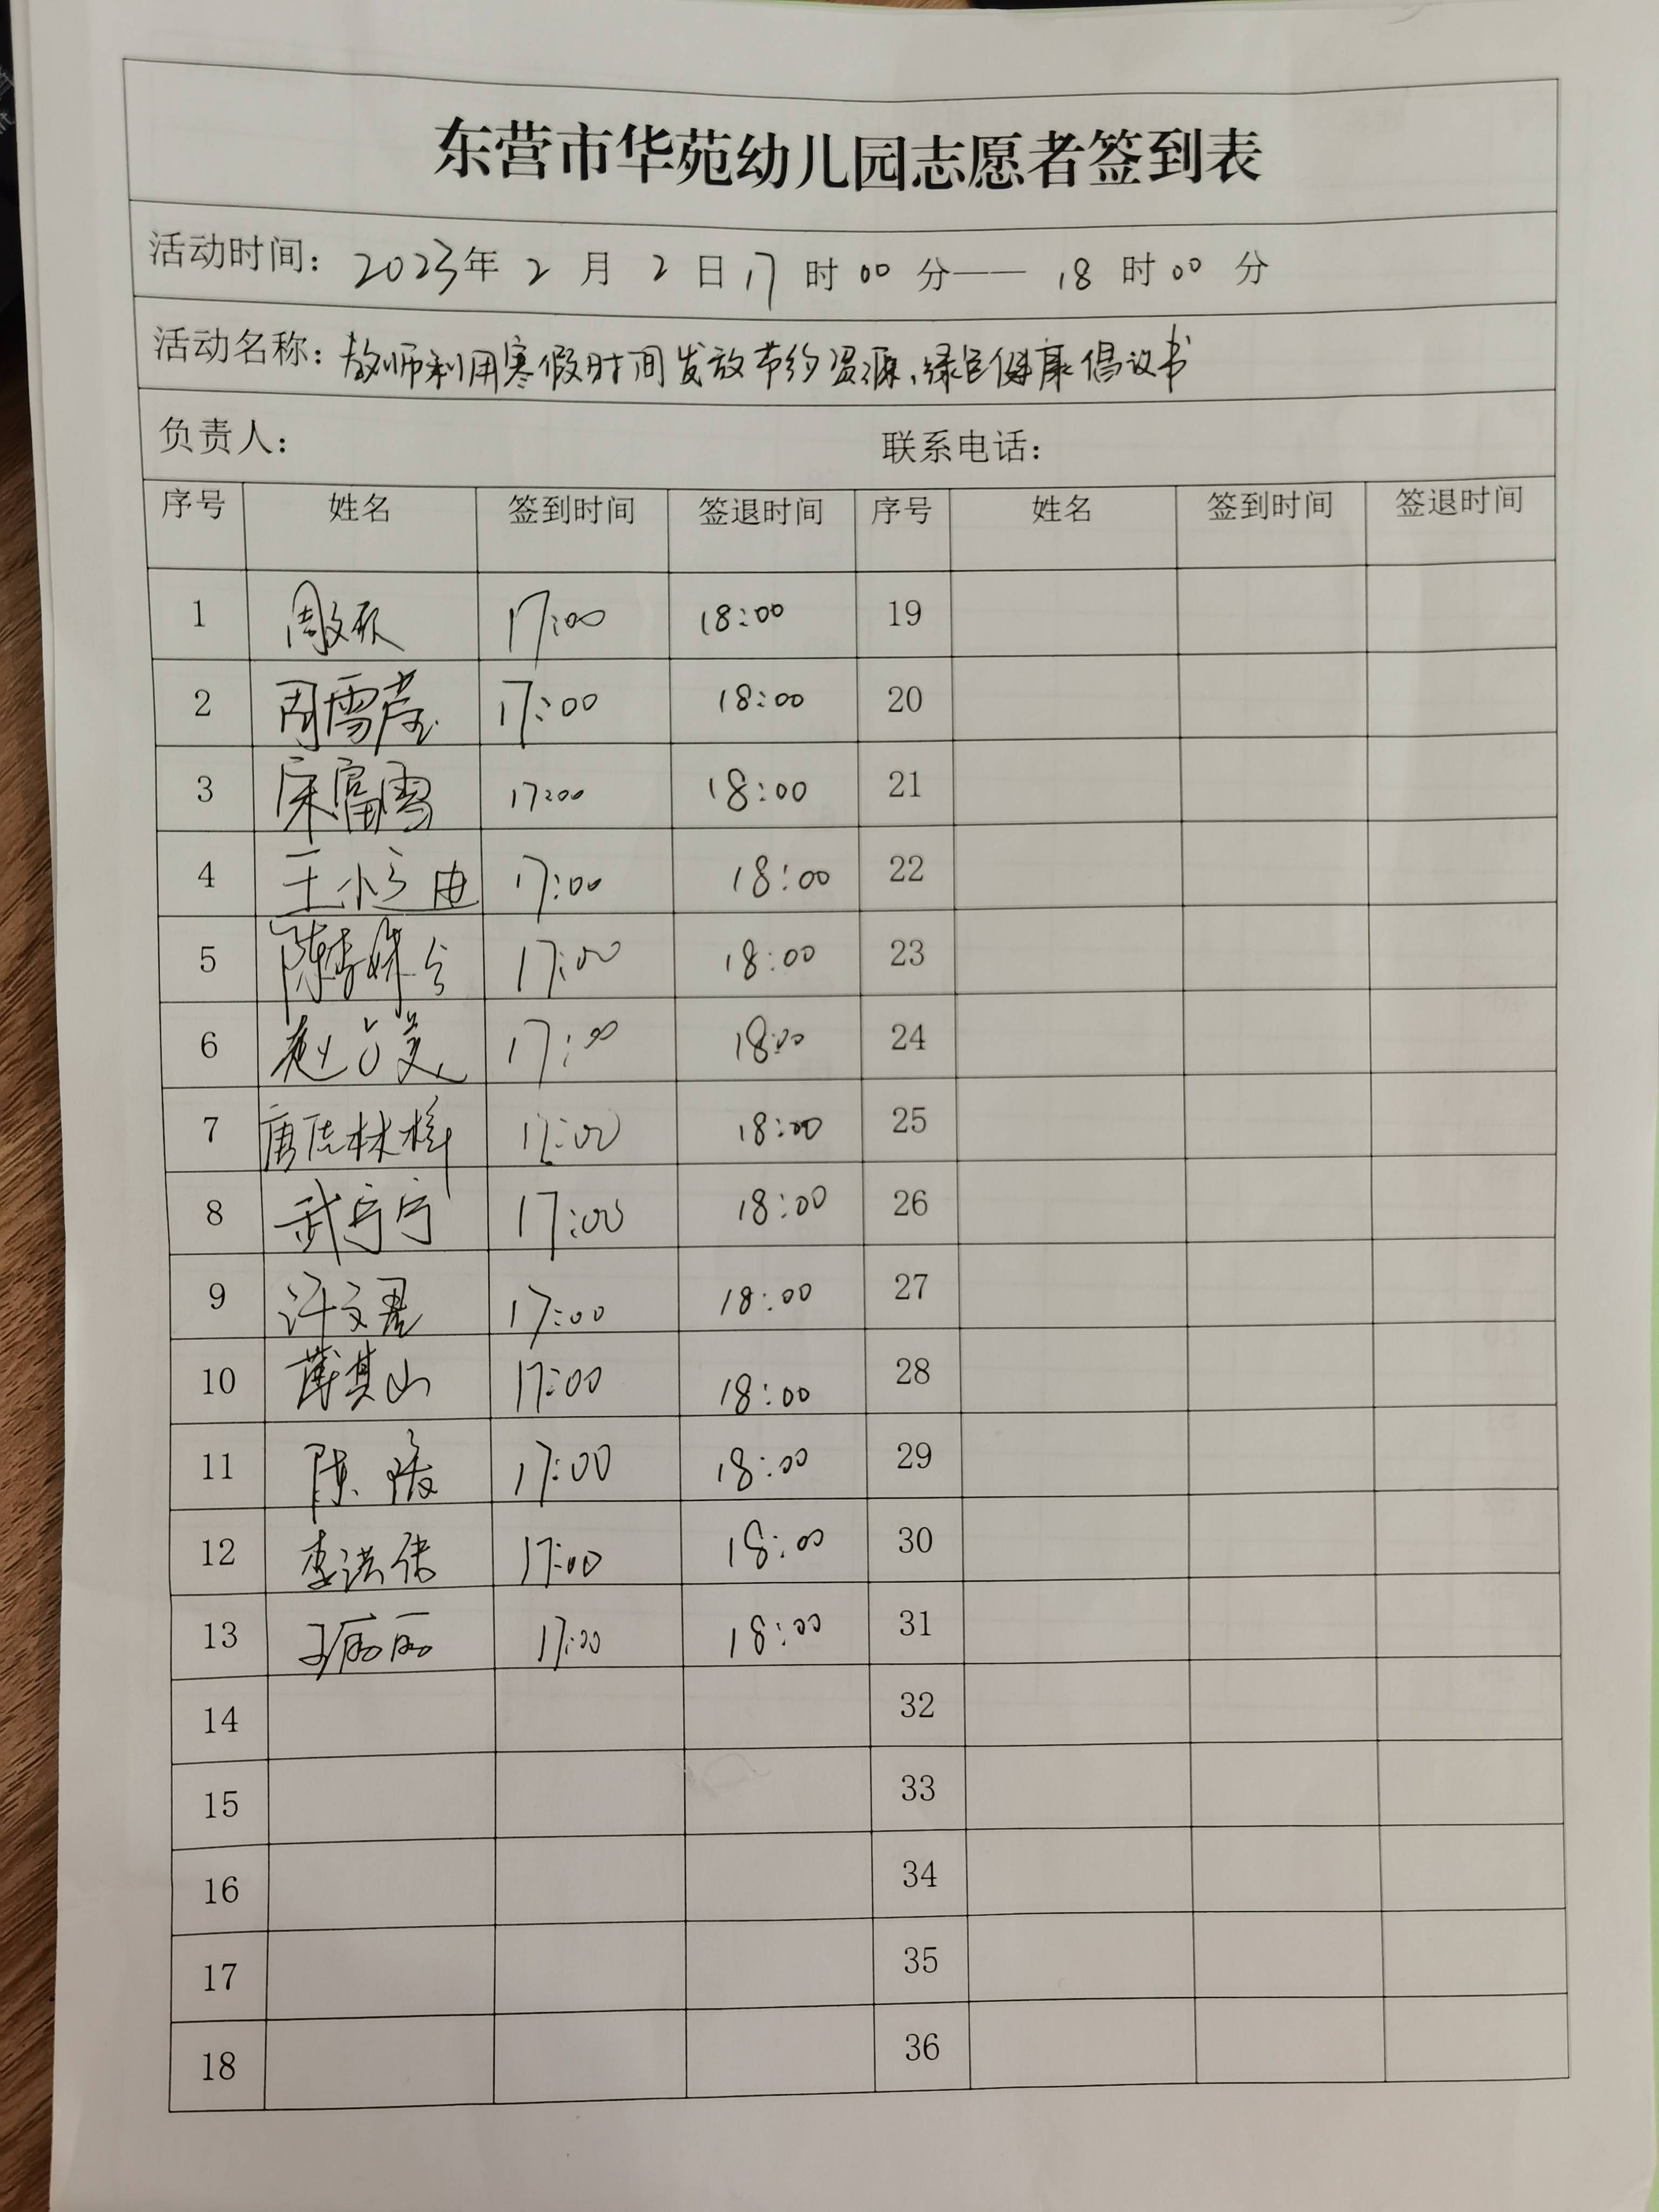 东营市华苑幼儿园志愿者签到表
活动时间：2023年 2 月 2 日 17 时 00 分—— 18 时 00 分
活动名称：教师利用寒假时间发放节约资源、绿色健康倡议书
负责人： 联系电话：
序号 姓名 签到时间 签退时间 序号 姓名 签到时间 签退时间
1 17:00 18:00 19
2 周雪莹 17:00 18:00 20
3 宋富雪 17:00 18:00 21
4 17:00 18:00 22
5 17:00 18:00 23
6 17:00 18:00 24
7 17:00 18:00 25
8 武宁宁 17:00 18:00 26
9 许文君 17:00 18:00 27
10 薄其山 17:00 18:00 28
11 陈 17:00 18:00 29
12 李洪伟 17:00 18:00 30
13 王丽丽 17:00 18:00 31
14 32
15 33
16 34
17 35
18 36